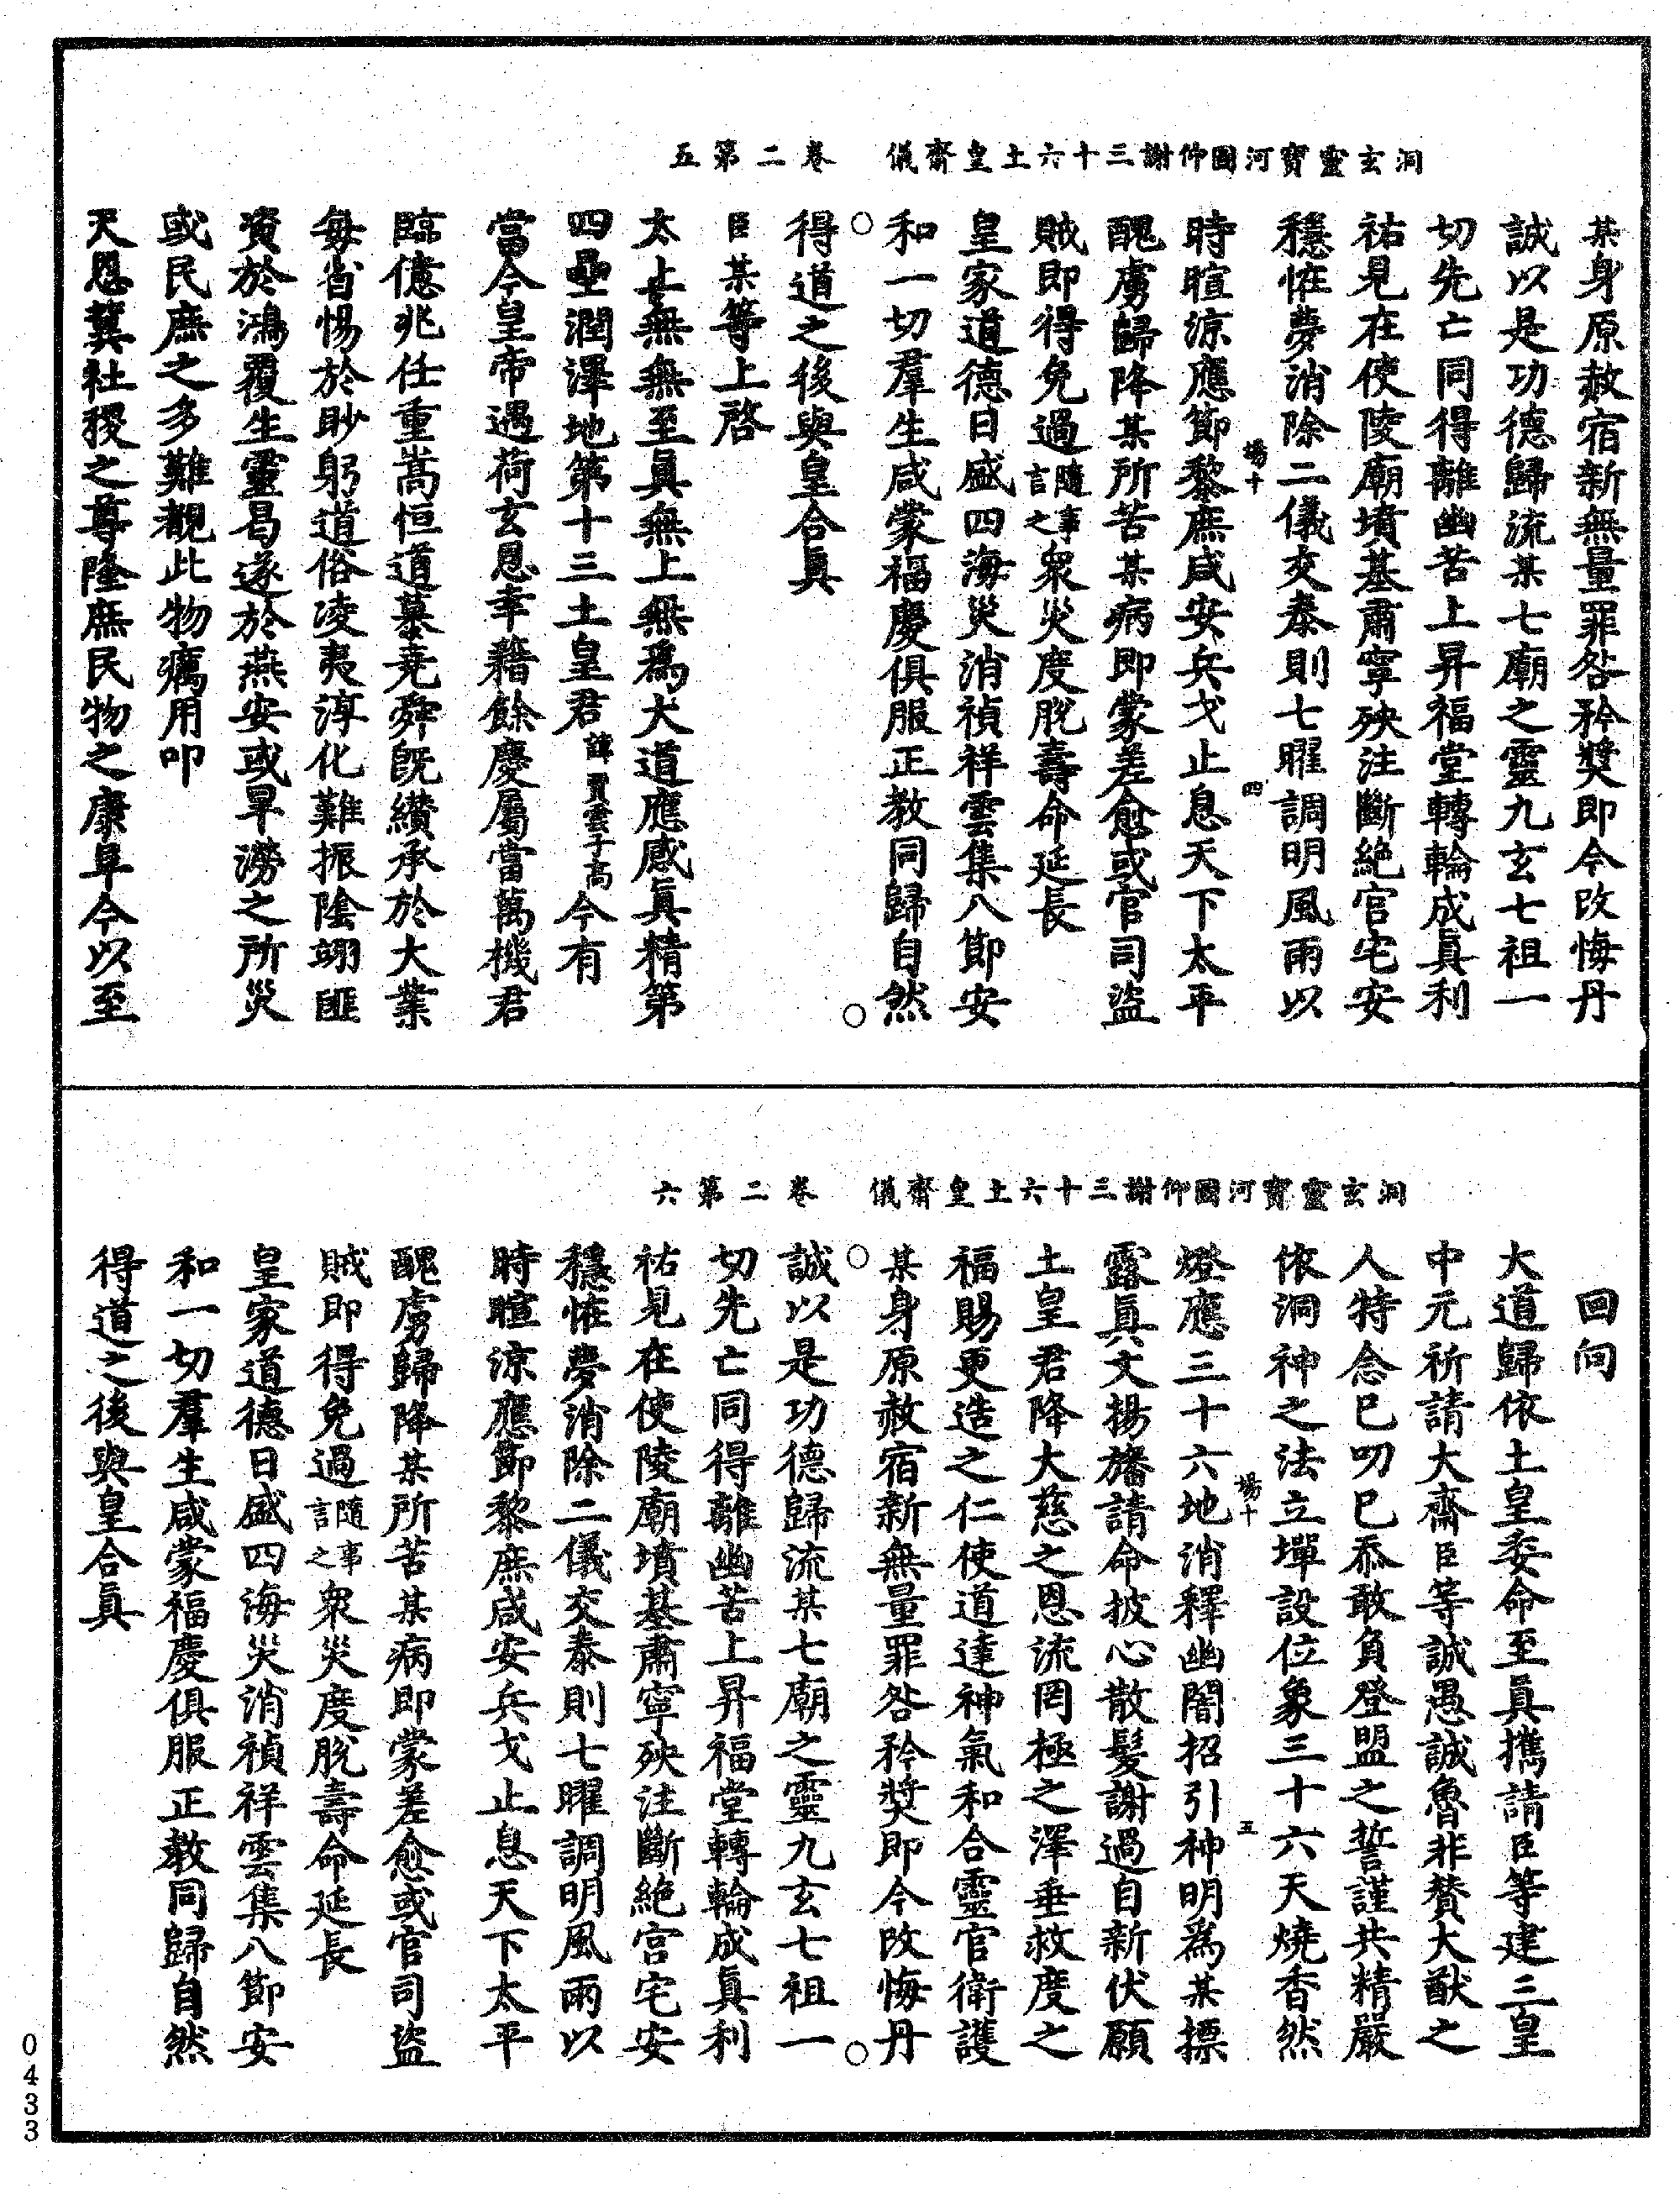 洞玄靈寶河圖仰謝三十六土皇齋儀　卷二第五
某身原赦宿新無量罪咎矜獎即今改悔丹
誠以是功德歸流某七廟之靈九玄七祖一
切先亡同得離幽苦上昇福堂轉輪成眞利
祐見在使陵廟墳基肅寧殃注斷絕官宅安
穩怪夢消除二儀交泰則七曜調明風雨以
場十　四
時暄涼應節黎庶咸安兵戈止息天下太平
醜虜歸降某所苦某病即蒙差愈或官司盜
賊即得免過隨事言之衆災度脫壽命延長
皇家道德日盛四海災消禎祥雲集八節安
和一切羣生咸蒙福慶俱服正教同歸自然
得道之後與皇合眞
臣某等上啓
太上無無至眞無上無爲大道應感眞精第
四壘潤澤地第十三土皇君諱賈雲子高今有
當今皇帝遇荷玄恩幸藉餘慶屬當萬機君
臨億兆任重嵩恒道慕堯舜旣纘承於大業
每省惕於眇躬道俗凌夷淳化難振隂翊匪
資於鴻覆生靈曷遂於燕安或旱澇之所災
或民庶之多難觀此物癘用叩
天恩冀社稷之尊隆庶民物之康阜今以至
洞玄靈寶河圖仰謝三十六土皇齋儀　卷二第六
回向
大道歸依土皇委命至眞攜請臣等建三皇
中元祈請大齋臣等誠愚誠魯非賛大猷之
人特念已叨已忝敢負登盟之誓謹共精嚴
依洞神之法立墠設位象三十六天燒香然
場十　五
燈應三十六地消釋幽闇招引神明爲某摽
露眞文揚旛請命披心散髮謝過自新伏願
土皇君降大慈之恩流罔極之澤垂救度之
福賜更造之仁使道達神氣和合靈官衛護
某身原赦宿新無量罪咎矜獎即今改悔丹
誠以是功德歸流某七廟之靈九玄七祖一
切先亡同得離幽苦上昇福堂轉輪成眞利
祐見在使陵廟墳基肅寧殃注斷絕宮宅安
穩怪夢消除二儀交泰則七曜調明風雨以
時暄涼應節黎庶咸安兵戈止息天下太平
醜虜歸降某所苦某病即蒙差愈或官司盜
賊即得免過隨事言之衆災度脫壽命延長
皇家道德日盛四海災消禎祥雲集八節安
和一切羣生咸蒙福慶俱服正教同歸自然
得道之後與皇合眞
0433